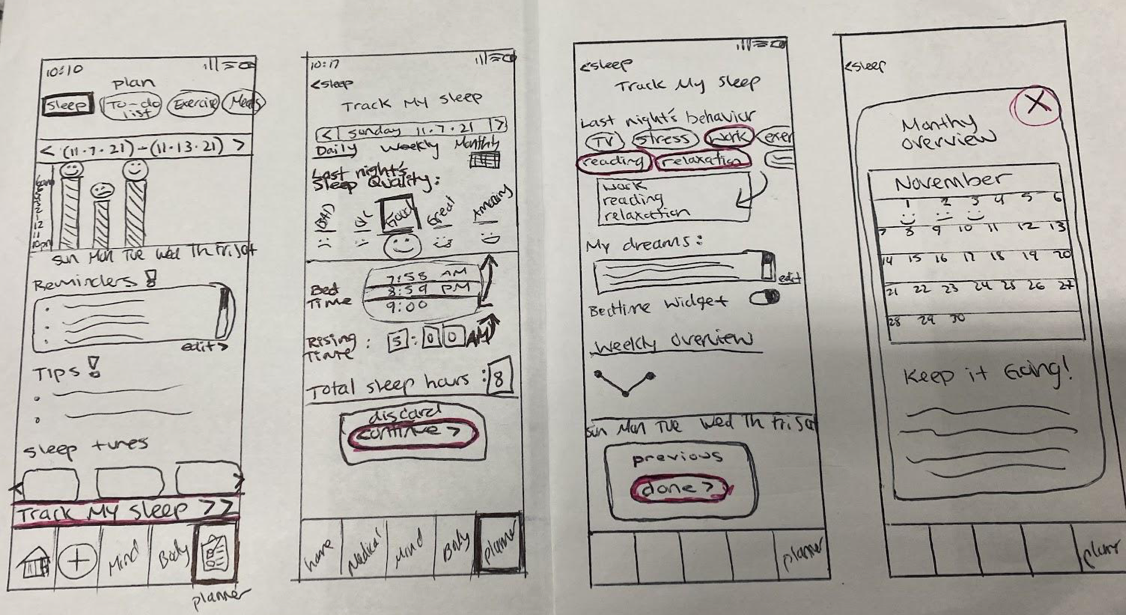 10:10
plan
Sleep
To-do list
Exercise
Meals
< (11.7.21) - (11.13.21) >
Sun Mon Tue Wed Th Fri Sat
Reminders !
edit >
Tips !
Sleep tunes
Track My Sleep >>
Mind
Body
planner
10:17
< Sleep
Track My Sleep
< Sunday 11.7.21 >
Daily Weekly Monthly
Last night's
Sleep Quality:
BAD
OK
Good
Great
Amazing
7:58 AM
Bed Time
8:59 PM
9:00
Rising Time: 5:00 AM
Total sleep hours: 8
discard
continue >
home
Medical
Mind
Body
planner
< Sleep
Track My Sleep
Last night's behavior
TV
stress
work
exer
reading
relaxation
work
reading
relaxation
My dreams:
edit
Bedtime Widget
Weekly Overview
Sun Mon Tue Wed Th Fri Sat
previous
done >
planner
< Sleep
X
Monthy
Overview
November
1 2 3 4 5 6
7 8 9 10 11 12 13
14 15 16 17 18 19 20
21 22 23 24 25 26 27
28 29 30
Keep it Going!
planr